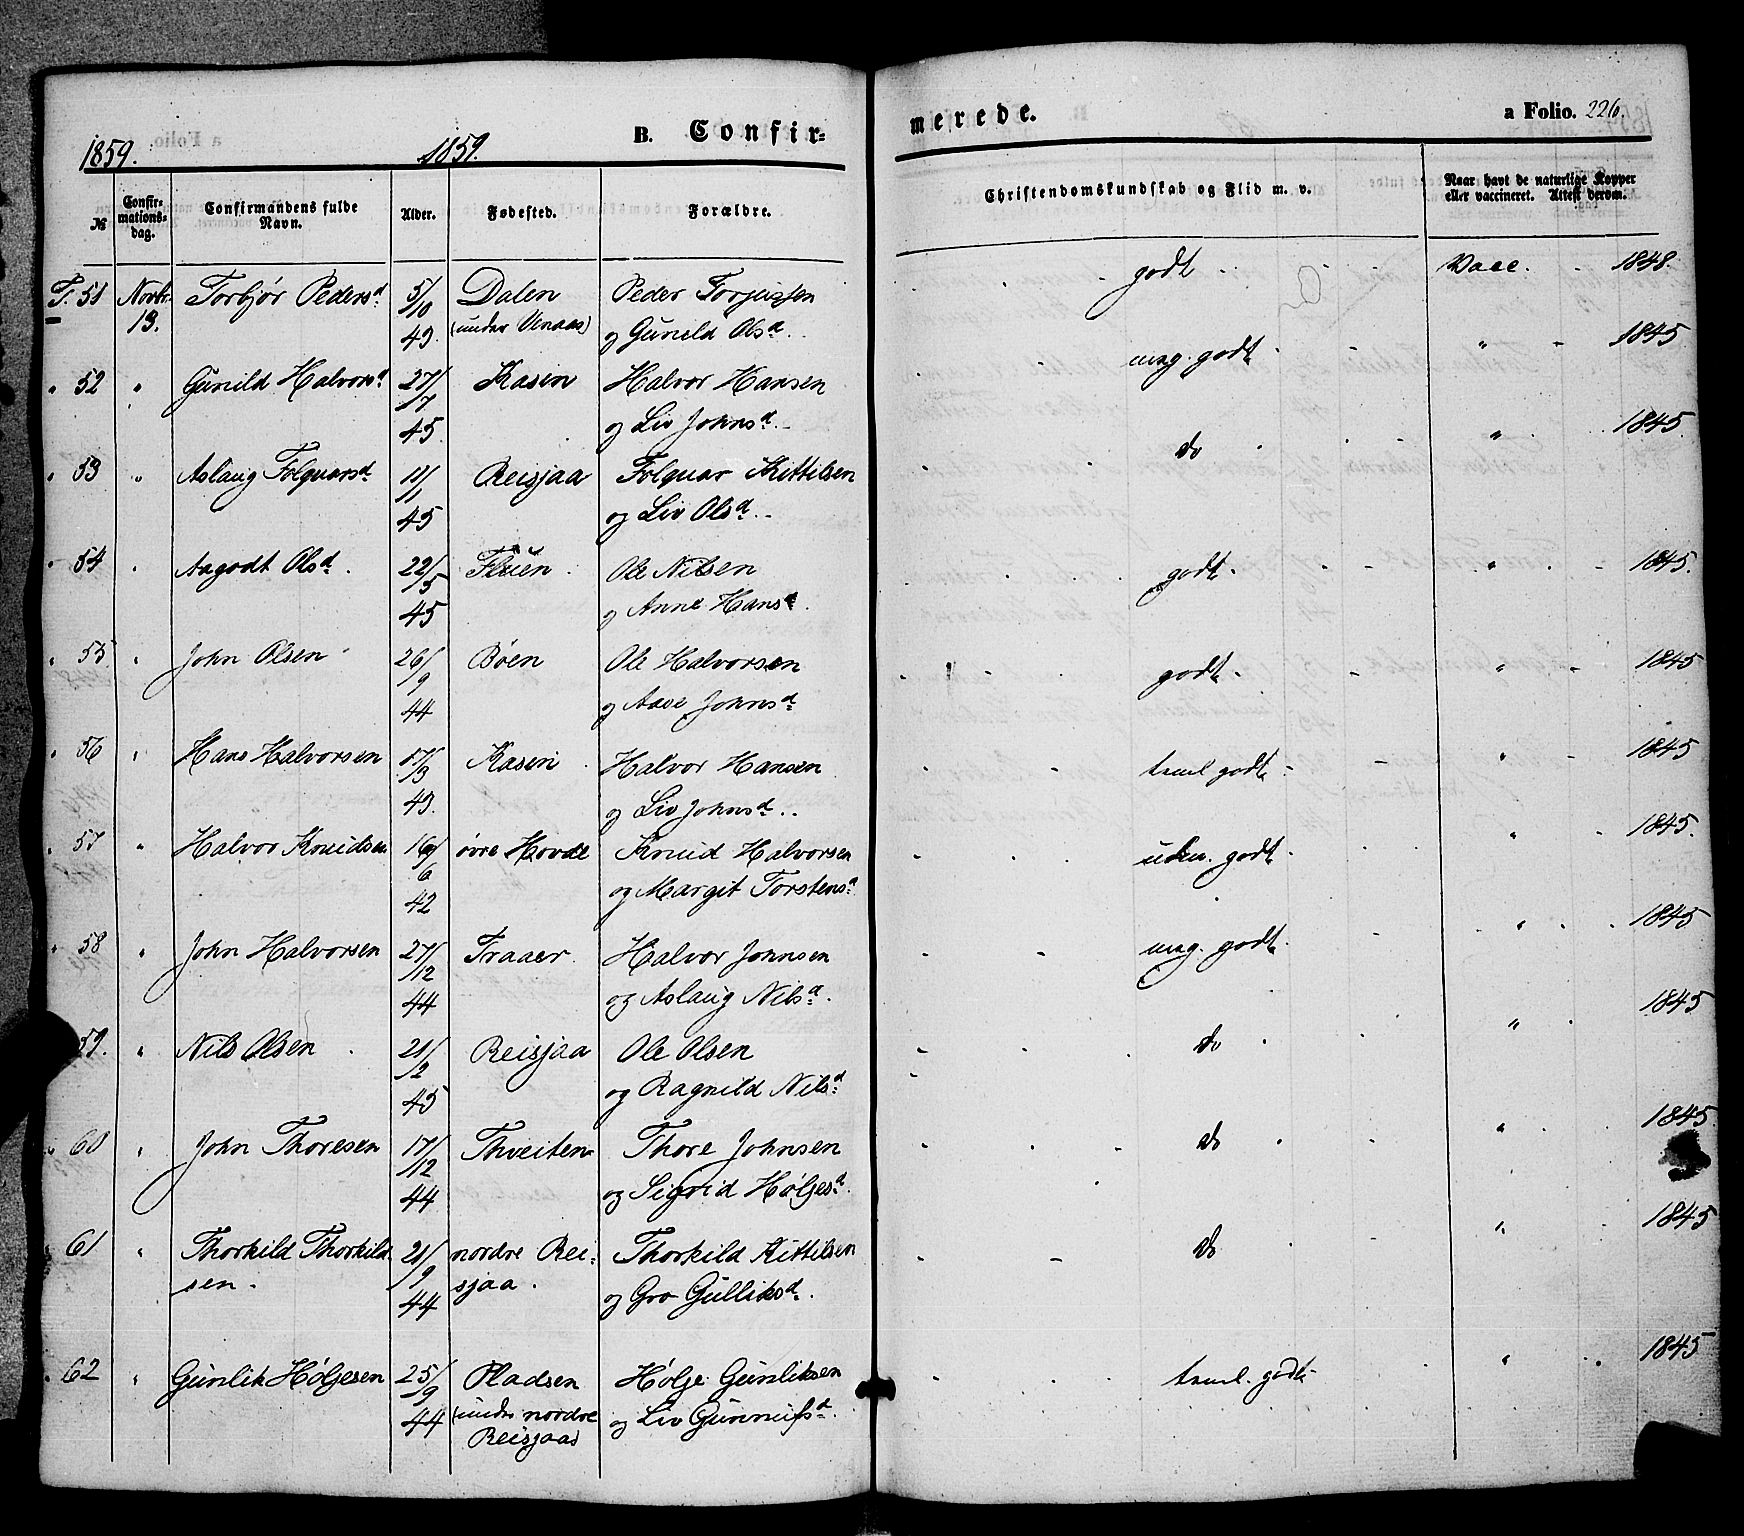 1859. 1859. B. Confir-
merede. a Folio. 226.
№ Confir-mations-dag. Confirmandens fulde Navn. Alder. Fødested. Forældre. Christendomskundskab og Flid m. v. Naar havt de naturlige Kopper eller vaccineret. Attest derom.
F. 51 Novbr. Torbjør Pedersd. 5/10 Dalen Peder Torjussen godt Vacc. 1848.
13. 43. (under Venaas) og Gunild Olsd.
" 52 " Gunild Halvorsd. 27/7 Kasin Halvor Hansen meg. godt " 1845
45. og Liv Johnsd.
" 53 " Aslaug Folquarsd. 11/1 Reisjaa Folquar Kittilsen do " 1845.
45 og Liv Olsd.
" 54 " Aagodt Olsd. 22/5 Fluen Ole Nilsen godt " 1845.
45 og Anne Hansd.
" 55 " John Olsen 26/9 Bøen Ole Halvorsen godt " 1845
44 og Aase Johnsd.
" 56 " Hans Halvorsen 17/3 Kasin Halvor Hansen taml godt " 1845
43. og Liv Johnsd.
" 57 " Halvor Knudsen 16/6 øvre Hovde Knud Halvorsen godt " 1845.
42 og Margit Torstensd.
" 58 " John Halvorsen 27/12 Traaer Halvor Johnsen meg. godt " 1845
44 og Aslaug Nilsd.
59. " Nils Olsen 21/2 Reisjaa Ole Olsen do " 1845
45 og Ragnild Nilsd.
" 60 " John Thoresen 17/12 Thveiten Thore Johnsen do " 1845
44 og Sigrid Høljesd.
" 61 " Thorkild Thorkild 21/9 nordre Rei- Thorkild Kittilsen do " 1845
sen. 44 sjaa. og Gro Gulliksd.
" 62 " Gunlik Høljesen 25/9 Pladsen Hølje Gunliksen taml. godt " 1845
44 (under nordre og Liv Gunnufsd.
Reisjaa)